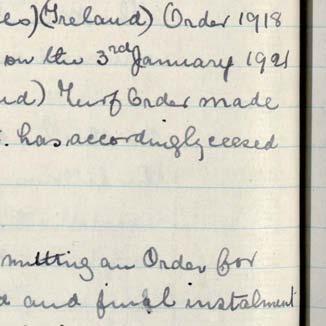 es) (Ireland) Order 1918
on the 3rd January 1921
nd) Turf Order made
. has accordingly ceesed
mitting an Order for
d and final instalment